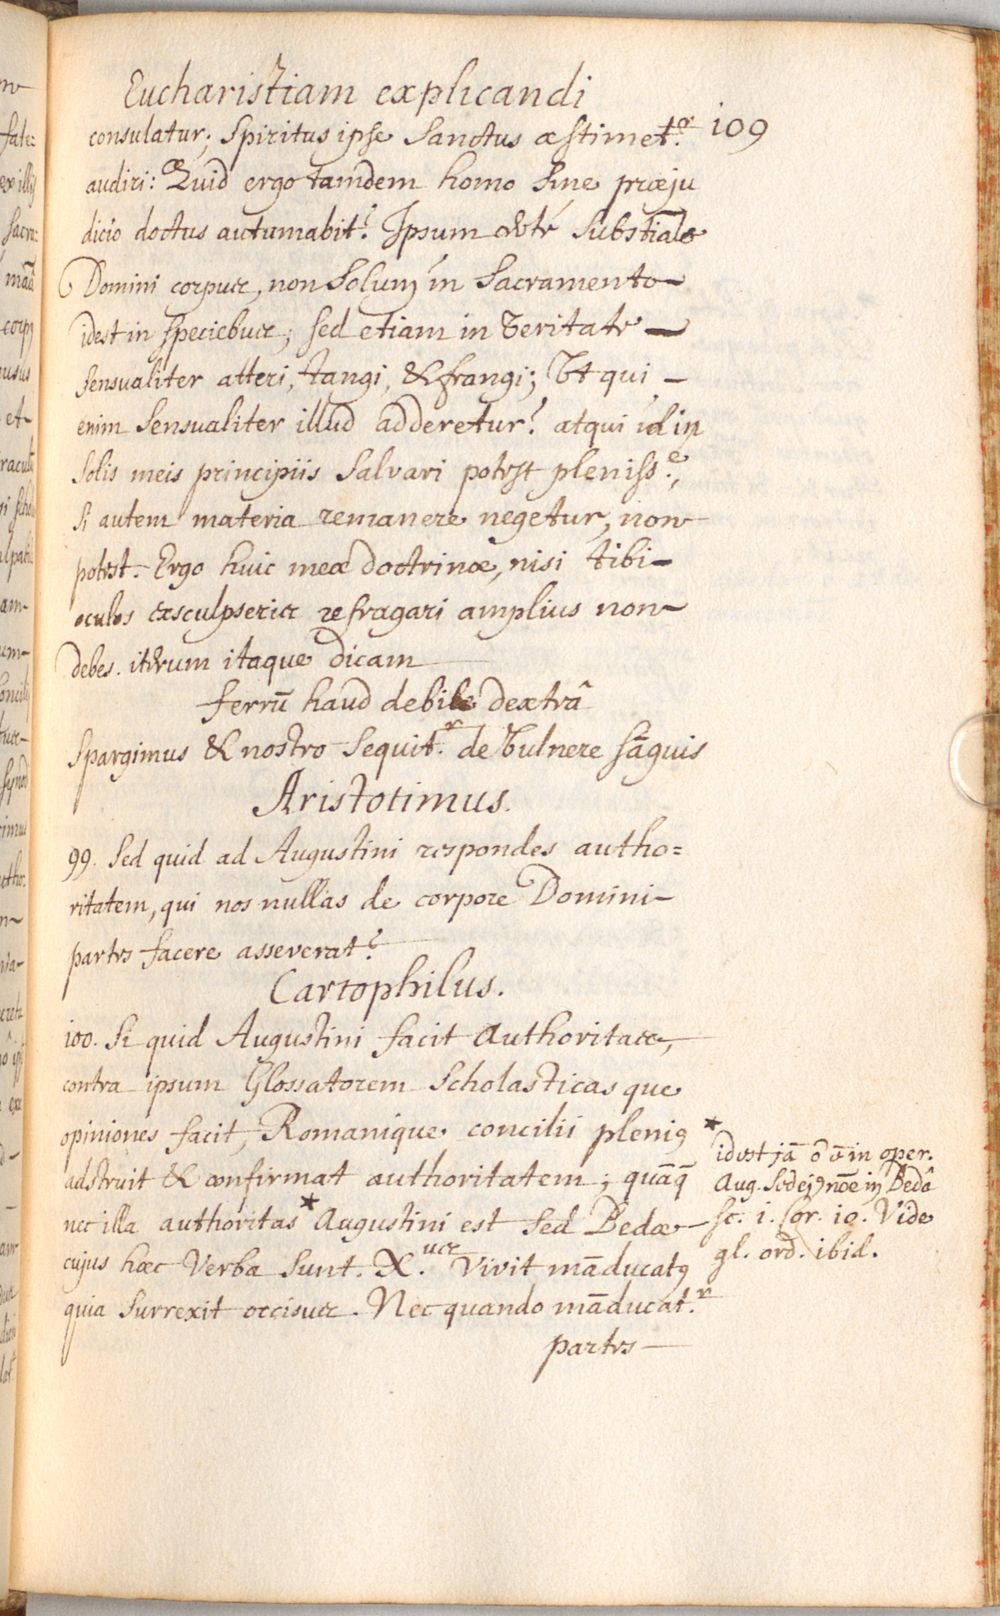 Eucharistiam explicandi
109
consulatur; Spiritus ipse Sanctus æstimet.r
audiri: Quid ergo tamdem homo sine præju
dicio doctus autumabit? Ipsum certè Substiale
Domini corpus, non Solum in Sacramento
idest in speciebus; sed etiam in Veritate
sensualiter atteri, tangi, & frangi; Vt qui
enim Sensualiter illud adderetur? atqui id in
Solis meis principiis Salvari potest pleniss.e,
Si autem materia remanere negetur, non
potest. Ergo huic meæ doctrinæ, nisi tibi
oculos exsculpseris refragari amplius non
debes. iterum itaque dicam
ferrū haud debile dextrâ
Spargimus & nostro Sequit.r de Vulnere sāguis
Aristotimus.
99. Sed quid ad Augustini respondes autho=
ritatem, qui nos nullas de corpore Domini
partes facere asseverat?
Cartophilus.
100. Si quid Augustini facit Authoritas,
contra ipsum Glossatorem Scholasticasque
opiniones facit, Romanique concilii pleniꝰ
adstruit & confirmat authoritatem; quāq̄
nec illa authoritas * Augustini est Sed Bedæ
cujus hæc Verba Sunt. X.us Vivit māducatꝰ
quia Surrexit occisus. Nec quando māducat.r
partes
* idest jā ō ē in oper.
Aug. Sed ejꝰ nōe in Bedâ
Sc. 1. Cor. 10. Vide
gl. ord. ibid.